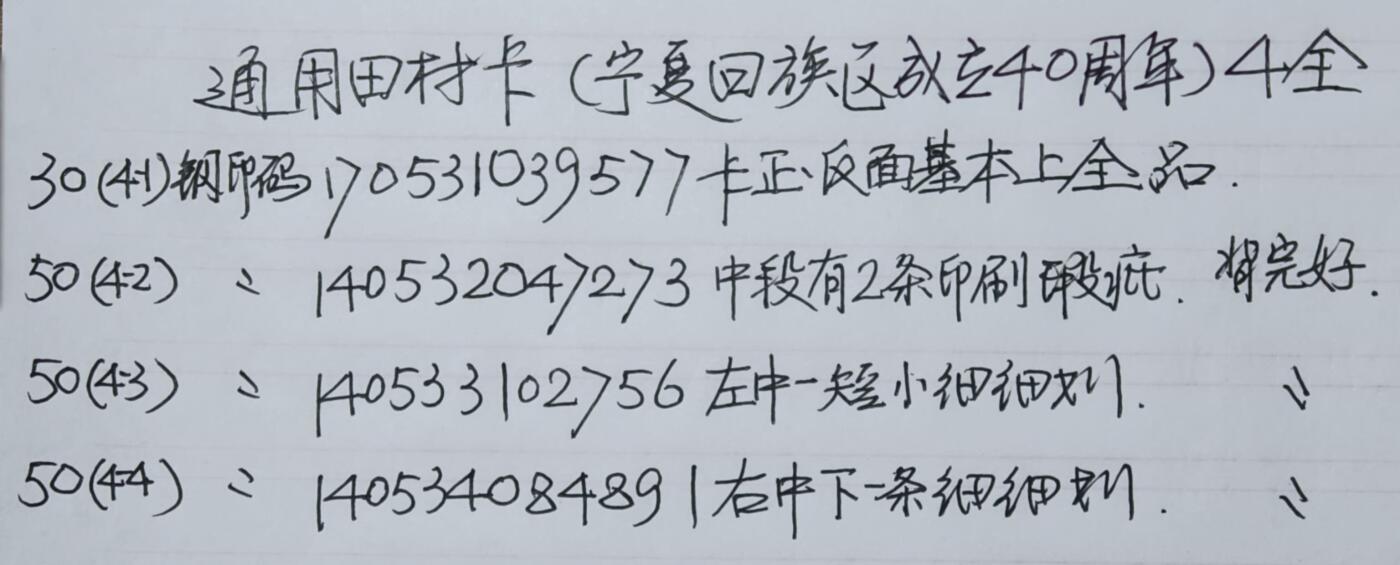 通用田村卡(宁夏回族区成立40周年)4全
30(4-1)钢印码170531039577卡正反面基本上全品.
50(4-2) 〃 140532047273中段有2条印刷瑕疵.背完好.
50(4-3) 〃 140533102756左中一短小细细划. 〃
50(4-4) 〃 140534084891右中下一条细细划. 〃